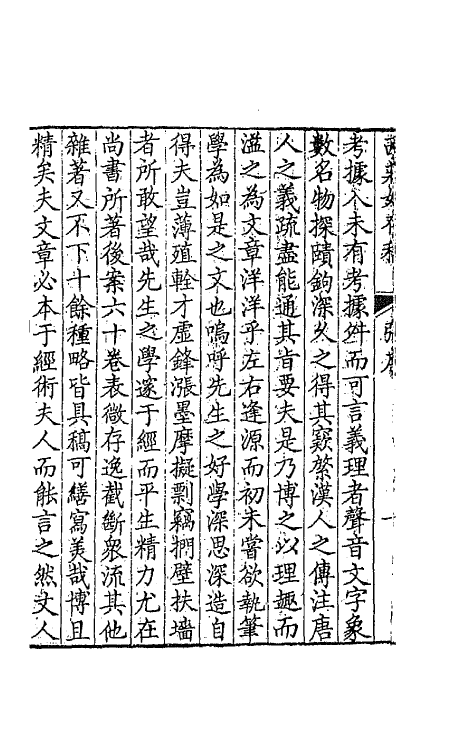 西莊始存稿 張序
考據人未有考據舛而可言義理者聲音文字象
數名物探賾鈎深久之得其竅綮漢人之傳注唐
人之義疏盡能通其旨要夫是乃博之以理趣而
溢之為文章洋洋乎左右逢源而初未嘗欲執筆
學為如是之文也嗚呼先生之好學深思深造自
得夫豈薄殖輇才虛鋒漲墨摩擬剽竊捫壁扶墻
者所敢望哉先生之學邃于經而平生精力尤在
尚書所著後案六十卷表微存逸截斷衆流其他
雜著又不下十餘種略皆具稿可繕寫美哉博且
精矣夫文章必本于經術夫人而能言之然文人